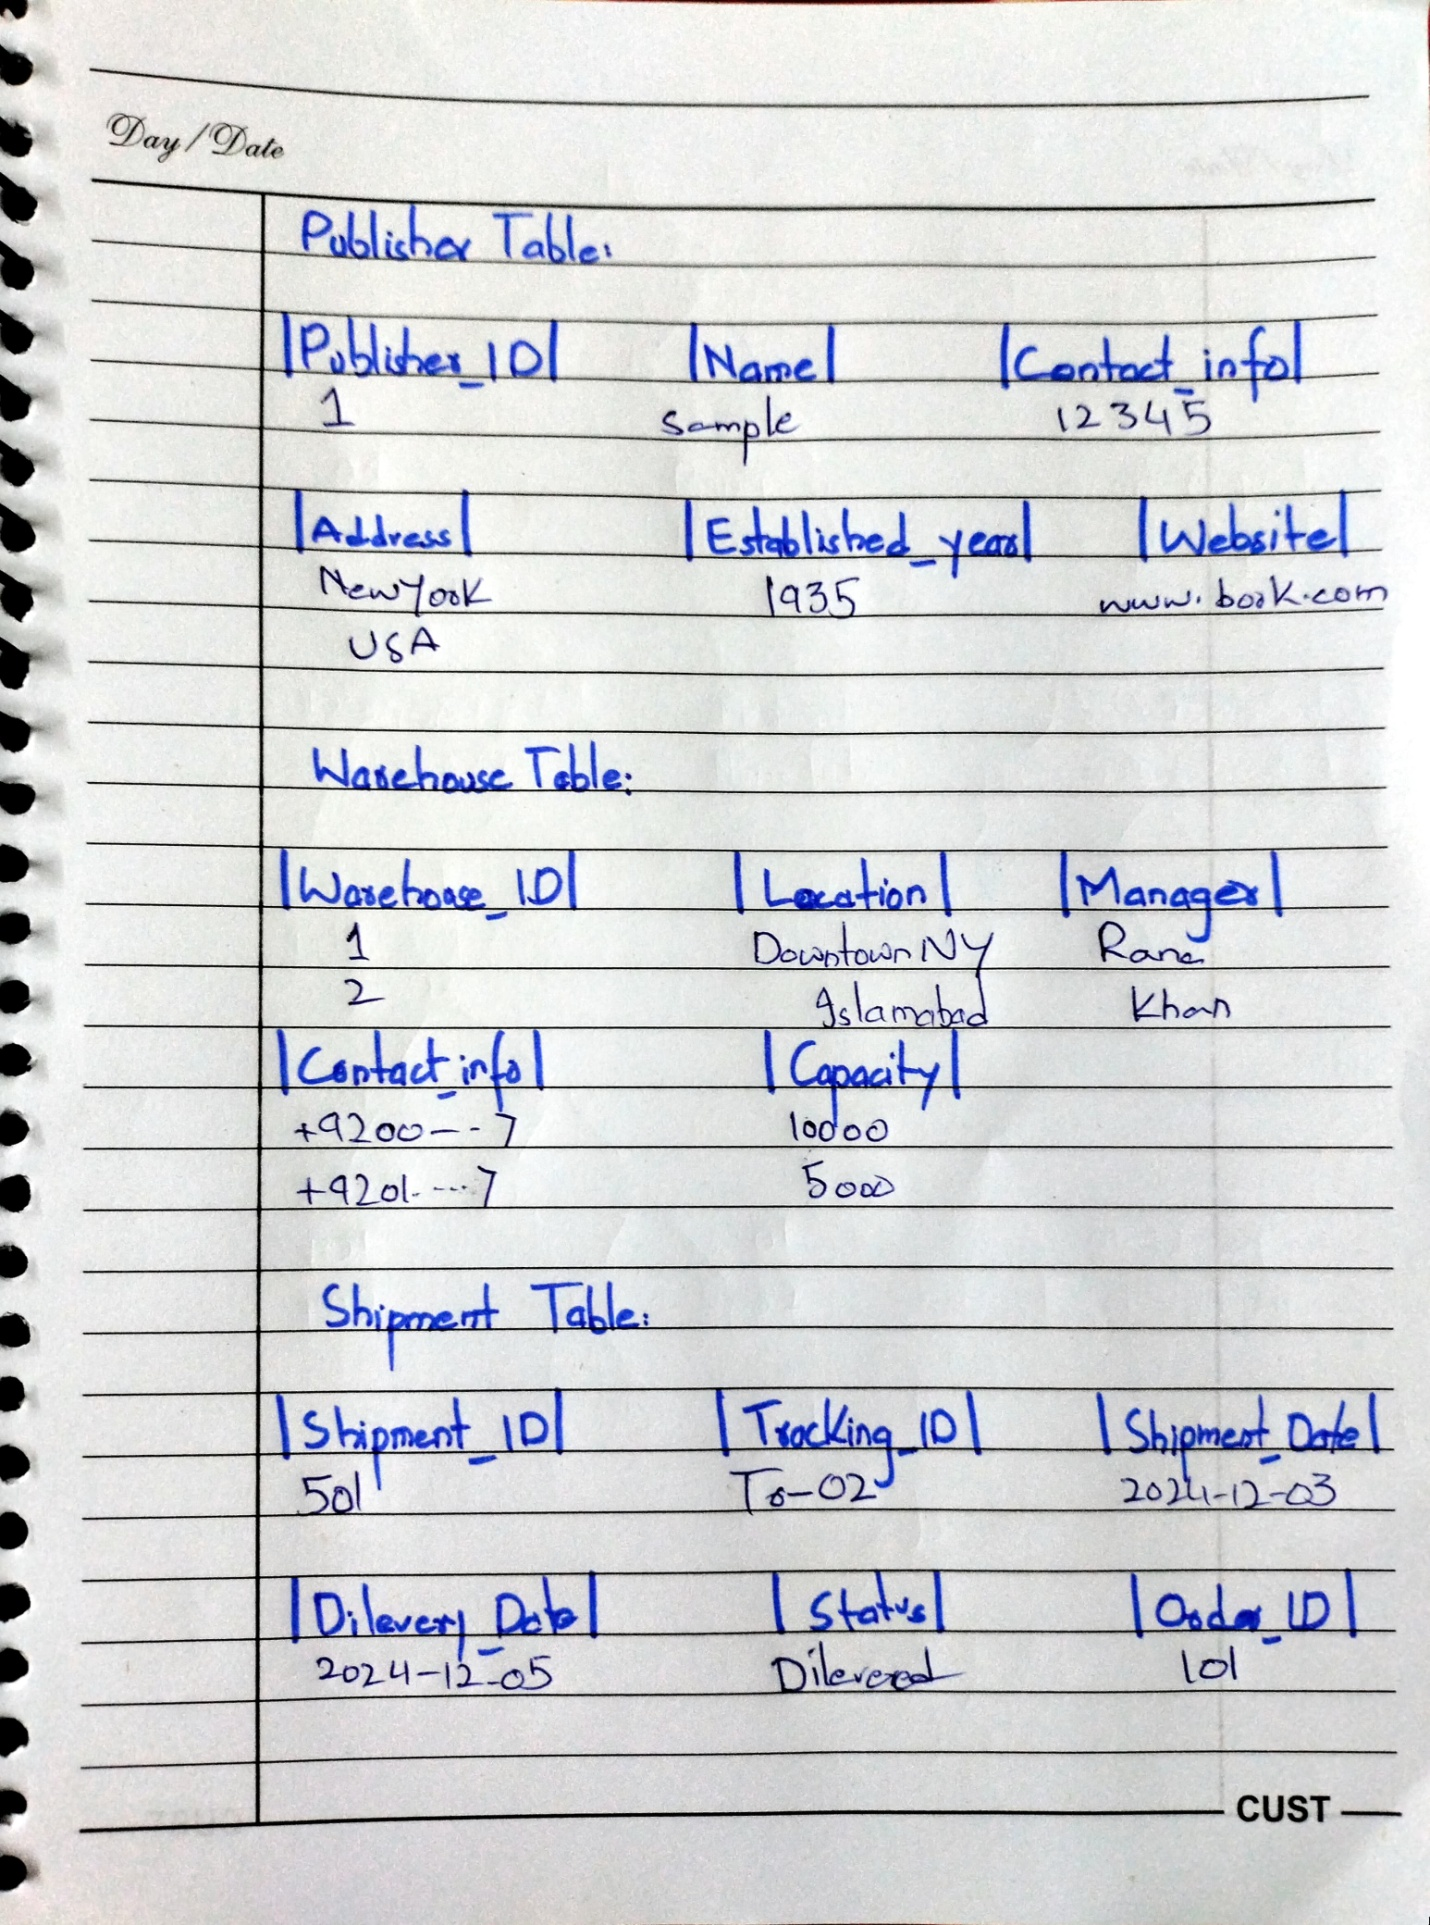 Day/Date
Publisher Table:
|Publisher_ID| |Name| |Contact_info|
1 Sample 12345
|Address| |Established_year| |Website|
New York 1935 www.book.com
USA
Warehouse Table:
|Warehouse_ID| |Location| |Manager|
1 Downtown NY Rana
2 Islamabad Khan
|Contact_info| |Capacity|
+9200---7 10000
+9201----7 5000
Shipment Table:
|Shipment_ID| |Tracking_ID| |Shipment_Date|
501 Tr-02 2024-12-03
|Dilevery_Date| |Status| |Order_ID|
2024-12-05 Dilevered 101
CUST